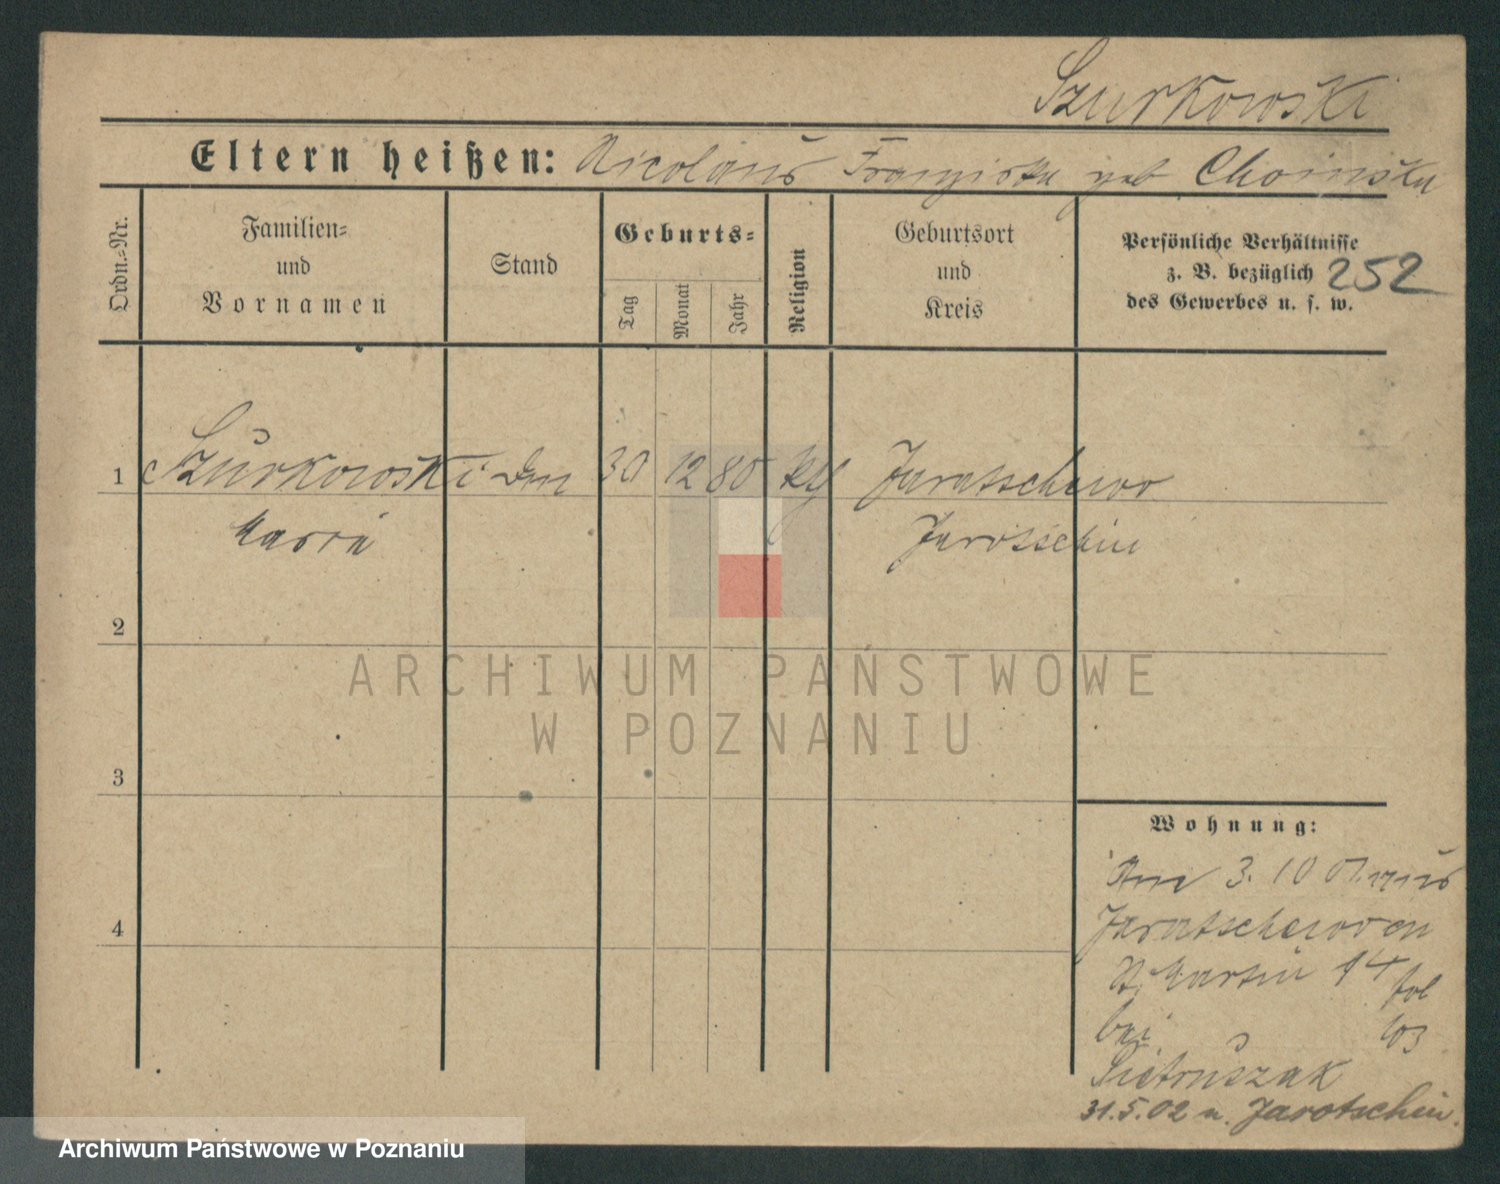 Szurkowski
Eltern heißen: Nicolaus Franziska geb Choinska
Ordn.-Nr.
Familien-
und
Vornamen
Stand
Geburts-
Tag
Monat
Jahr
Religion
Geburtsort
und
Kreis
Persönliche Verhältnisse
z. B. bezüglich
des Gewerbes u. s. w.
252
1 Szurkowski 30 12 80 Jaratschewo
Maria Jarotschin
2
3
4
Wohnung:
3. 10 01 aus
Jaratschewo
St Martin 14
bei
Pietruszak
31.5.02 n. Jarotschin.
ARCHIWUM PAŃSTWOWE
W POZNANIU
Archiwum Państwowe w Poznaniu